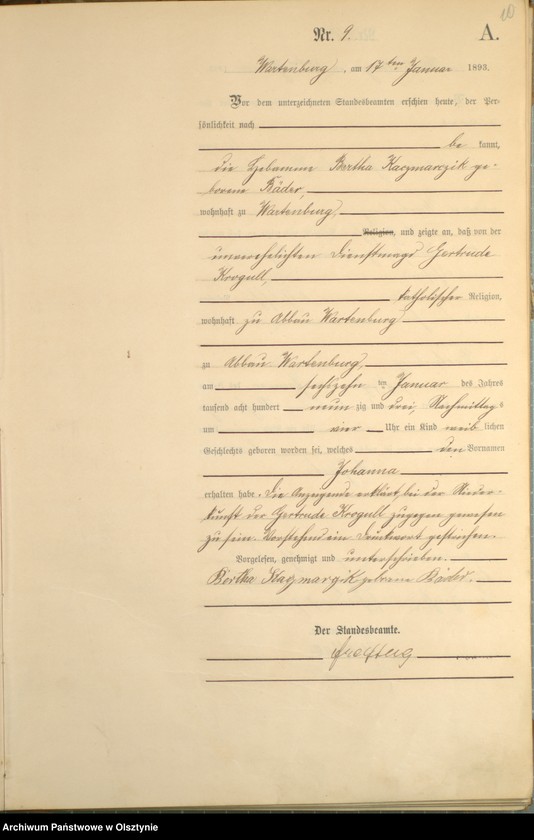 10
Nr. 9. A.
Wartenburg, am 17ten Januar 1893.
Vor dem unterzeichneten Standesbeamten erschien heute, der Per-
sönlichkeit nach
be kannt,
die Hebamme Bertha Kaczmarczik ge-
borene Räder,
wohnhaft zu Wartenburg,
Religion, und zeigte an, daß von der
unverehelichten Dienstmagd Gertrude
Krogull,
katholischer Religion,
wohnhaft zu Abbau Wartenburg
zu Abbau Wartenburg,
am sechzehn ten Januar des Jahres
tausend acht hundert neun zig und drei, Nachmittags
um vier Uhr ein Kind weib lichen
Geschlechts geboren worden sei, welches den Vornamen
Johanna
erhalten habe. Die Anzeigende erklärt, bei der Nieder-
kunft der Gertrude Krogull zugegen gewesen
zu sein. Vorstehend ein Druckwort gestrichen.
Vorgelesen, genehmigt und unterschrieben.
Bertha Kaczmarczik geborene Räder.
Der Standesbeamte.
Archiwum Państwowe w Olsztynie